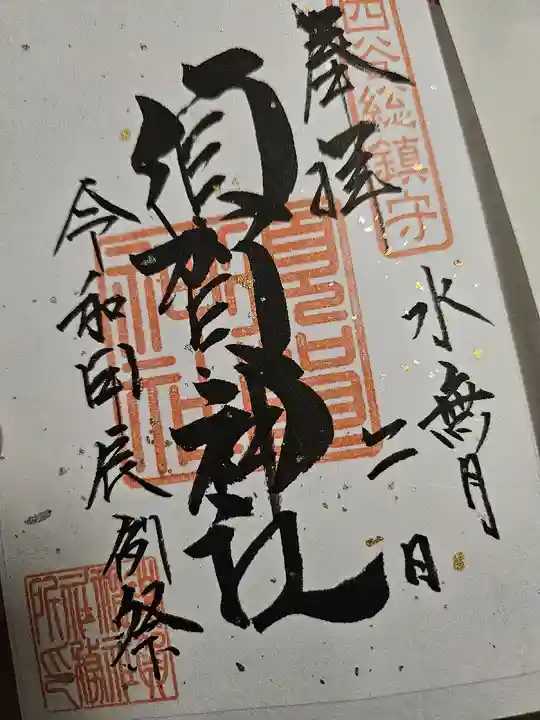 四谷総鎮守
奉拝
水無月
二日
須賀神社
令和甲辰例祭
須賀神社